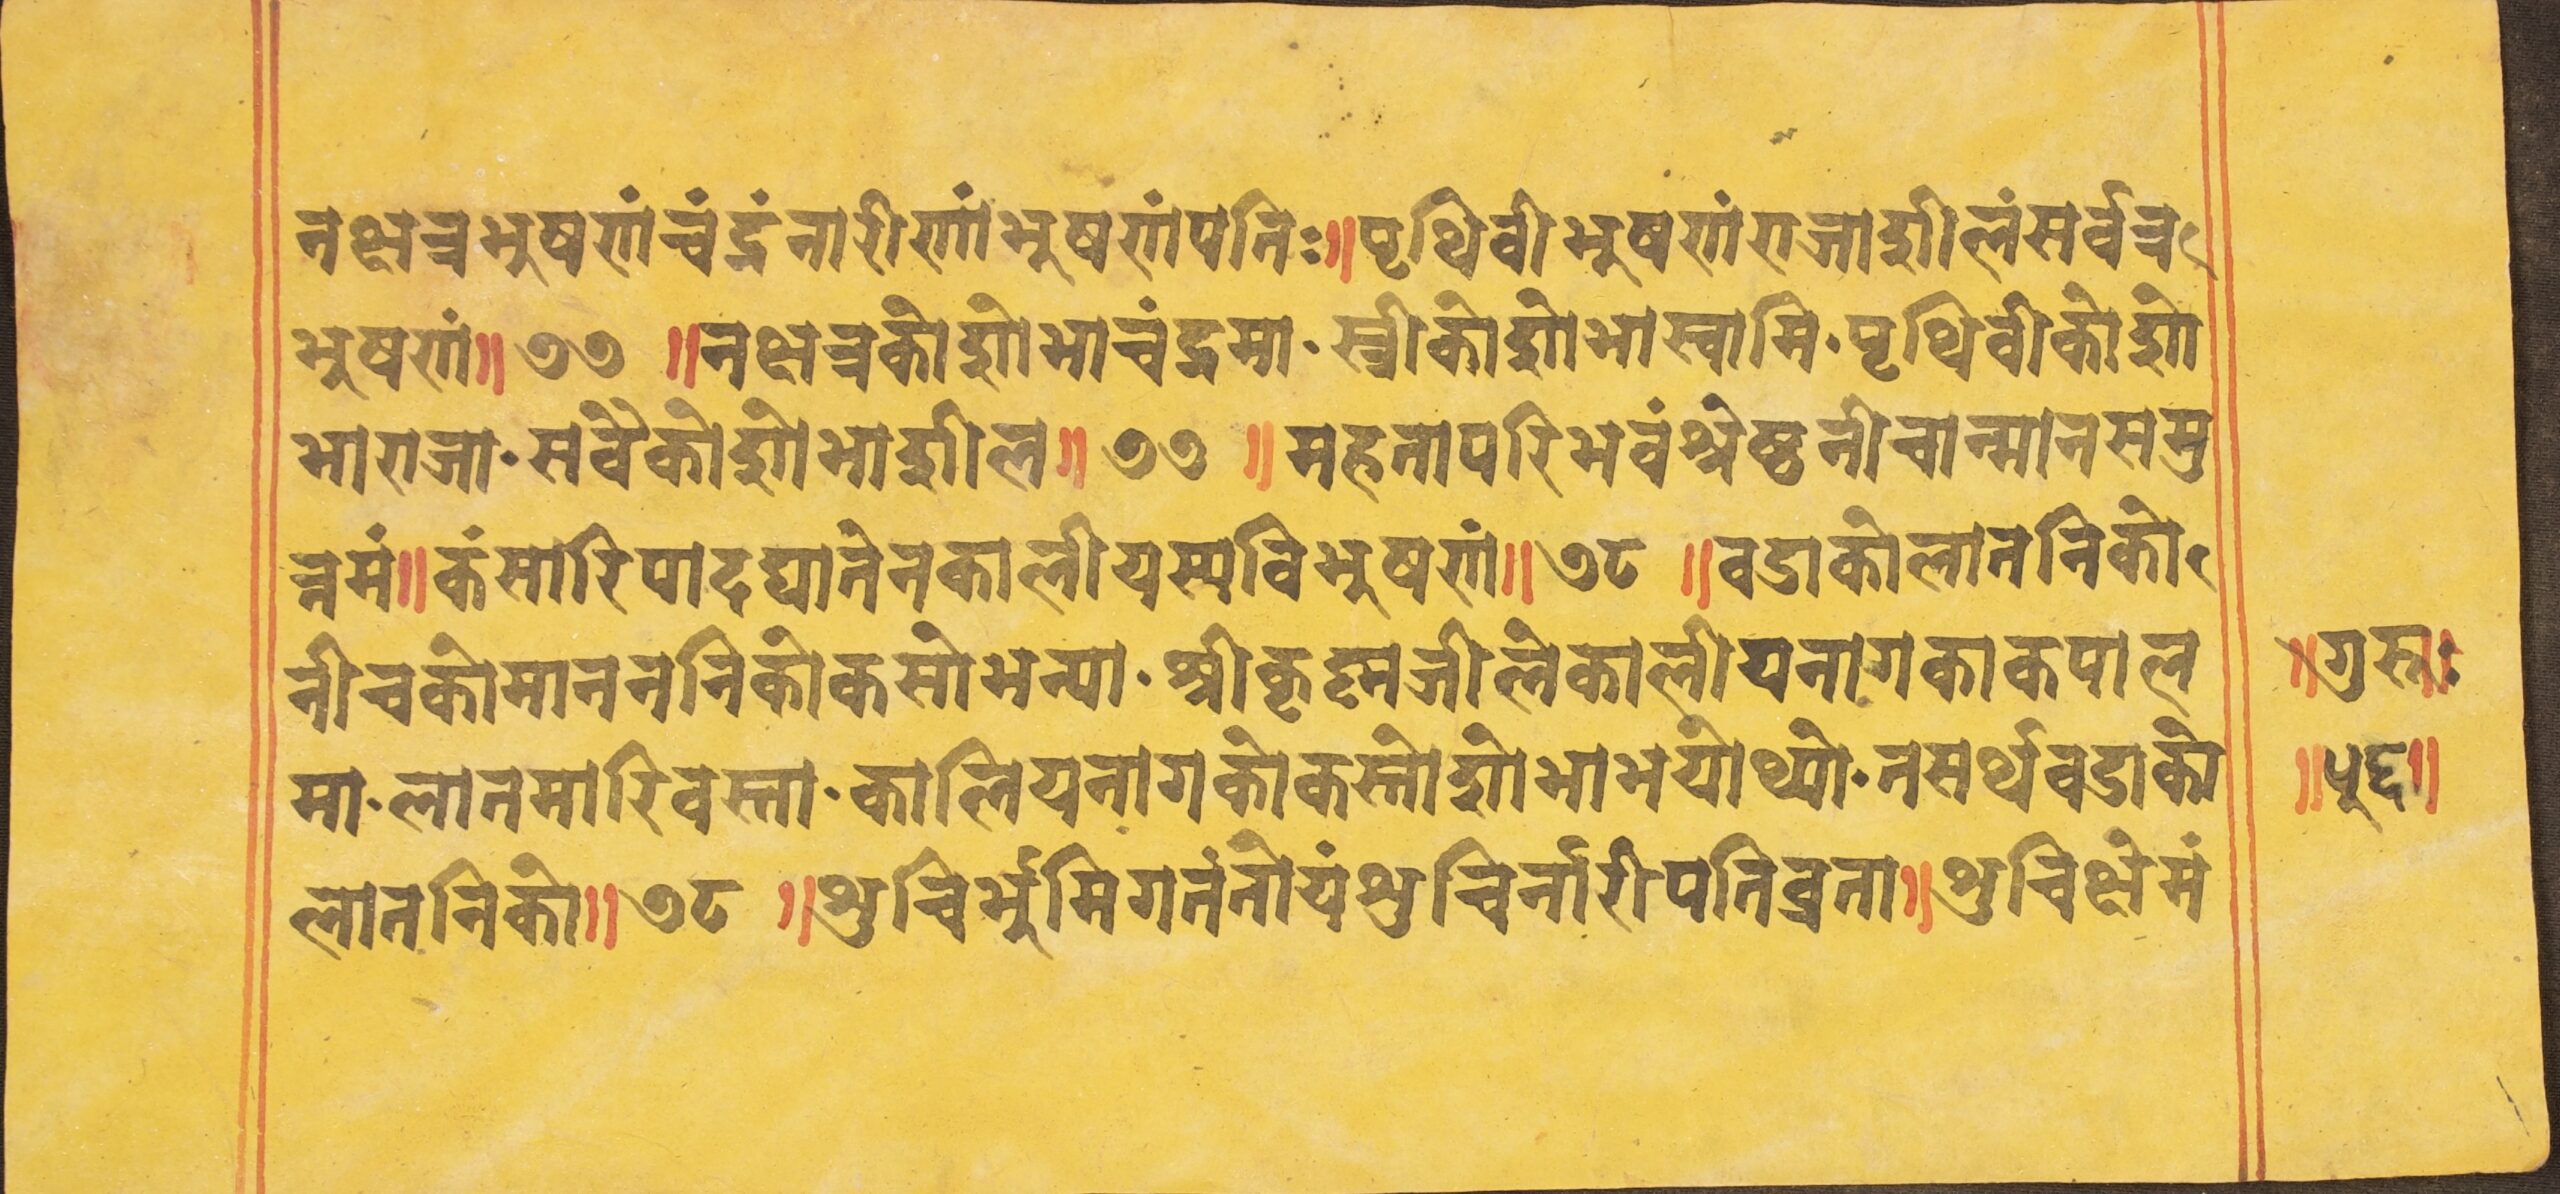 नक्षत्रभुषणंचंद्रंनारीणांभुषणंपतिः॥पृथिवीभुषणंराजाशीलंसर्वत्र
भुषणं॥७७॥नक्षत्रकोशोभाचंद्रमा·स्त्रीकोशोभास्वामि·पृथिवीकोशो
भाराजा·सवैकोशोभाशील॥७७॥महतापरिभवंश्रेष्ठनीचान्मानसमु
त्तमं॥कंसारिपादघातेनकालीयस्यविभुषणं॥७८॥वडाकोलातनिको
नीचकोमाननिको कसोभन्या·श्रीकृष्नजीलेकालीयनागकाकपाल
मा·लातमारिवस्ता·कालियनागकोकस्तोशोभाभयोथ्यो·तसर्थवडाको
लातनिको॥७८॥शुचिर्भूमिगतंतोयंशुचिर्नारीपतिव्रता॥शुचिक्षेमं
॥गुरुः॥